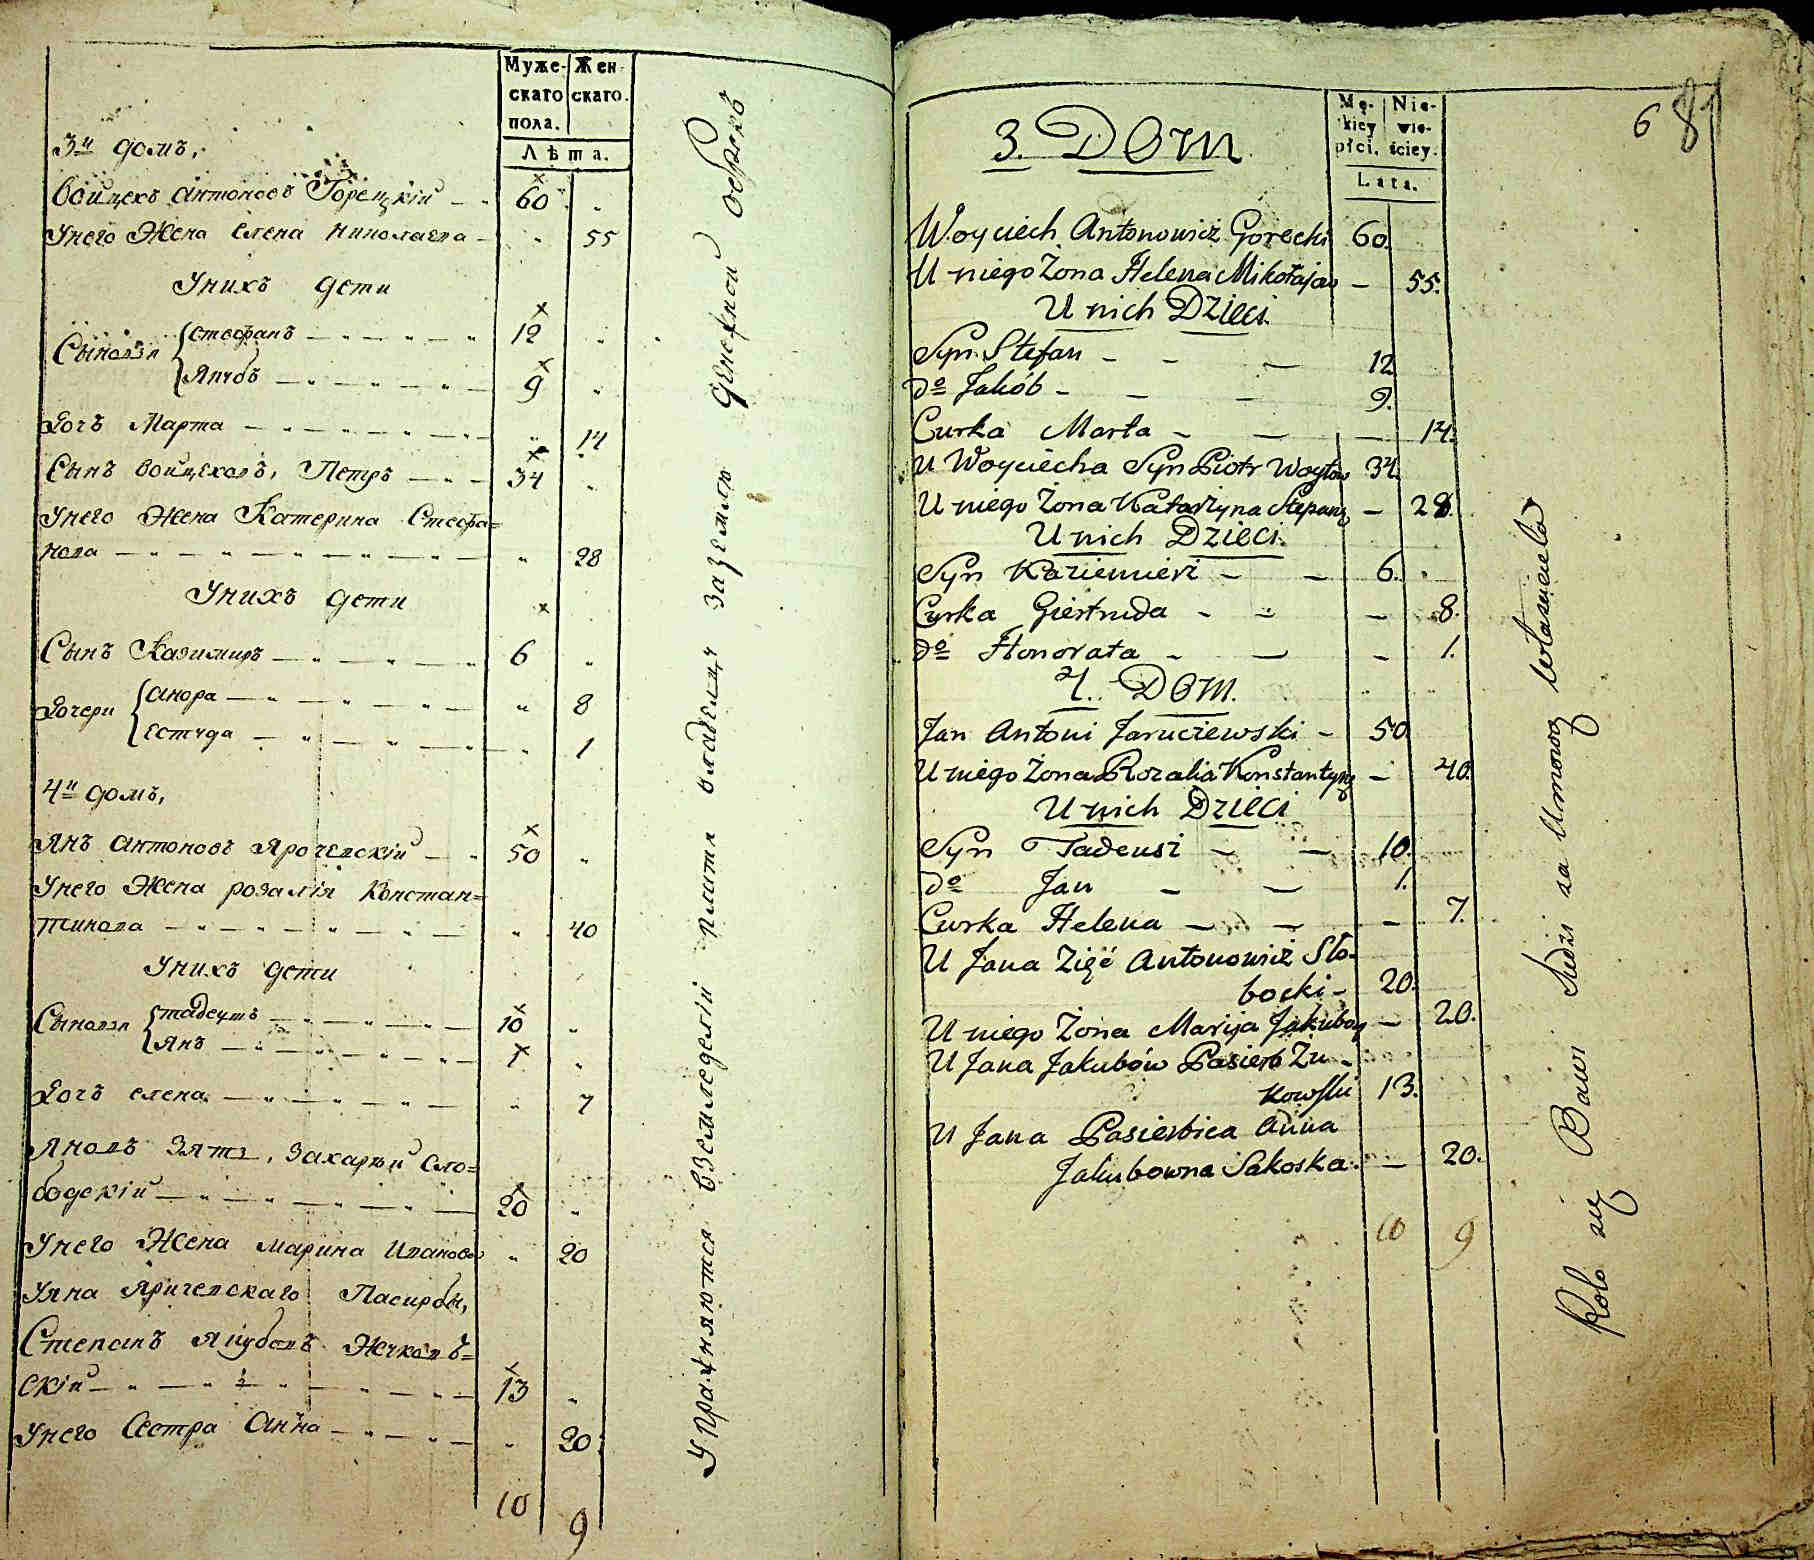 Муже- Жен-
скаго скаго.
пола.
Лѣта.
3й домъ,
Войцехъ Антоновъ Горецкій 60
Унего Жена Елена Николаева 55
Унихъ дети
Сыновья Стефанъ 12
Якубъ 9
Дочь Марта 14
Сынъ Войцеховъ, Петръ 34
Унего Жена Катерина Стефа=
нова 28
Унихъ дети
Сынъ Казимиръ 6
Дочери 8
1
4й домъ,
Янъ Антоновъ Ярочевскій 50
Унего Жена Розалія Констан=
тинова 40
Унихъ дети
Сыновья Тадеушъ 10
Янъ 1
Дочь Елена 7
Яновъ Зять, Захарый Сло=
бодскій 20
Унего Жена Марина Иванова 20
Уяна Яричевскаго Пасирбы,
Степанъ Якубовъ
скій 13
Унего Сестра Анна 20
10 9
Упражняются вземледелій платя владельцу заземлю денежной оброкъ
6 81
Mę- Nie-
kiey wie-
płci. ściey.
Lata.
3. Dom
Woyciech Antonowicz Gorecki 60.
U niego Żona Helena Mikołajow — 55.
U nich Dzieci.
Syn Stefan — 12
do Jakób — 9.
Curka Marta — 14.
U Woyciecha Syn Piotr Woytow 34.
U niego Żona Katarzyna Stepan — 28.
U nich Dzieci.
Syn Kaziemierz — 6.
Curka Giertruda — 8.
do Honorata — 1.
4. Dom.
Jan Antoni Jaruczewski — 50
U niego Żona Rozalia Konstantyn — 40.
U nich Dzieci
Syn Tadeusz — 10.
do Jan — 1.
Curka Helena — 7.
U Jana Zięć Antonowicz Sło-
bocki — 20.
U niego Żona Maryja Jakubow — 20.
U Jana Jakubów Pasierb Żu-
kowski 13.
U Jana Pasierbica Anna
Jakubowna Sakoska. — 20.
10 9
Rolo się Bawi Sudzi za Umową właściciela